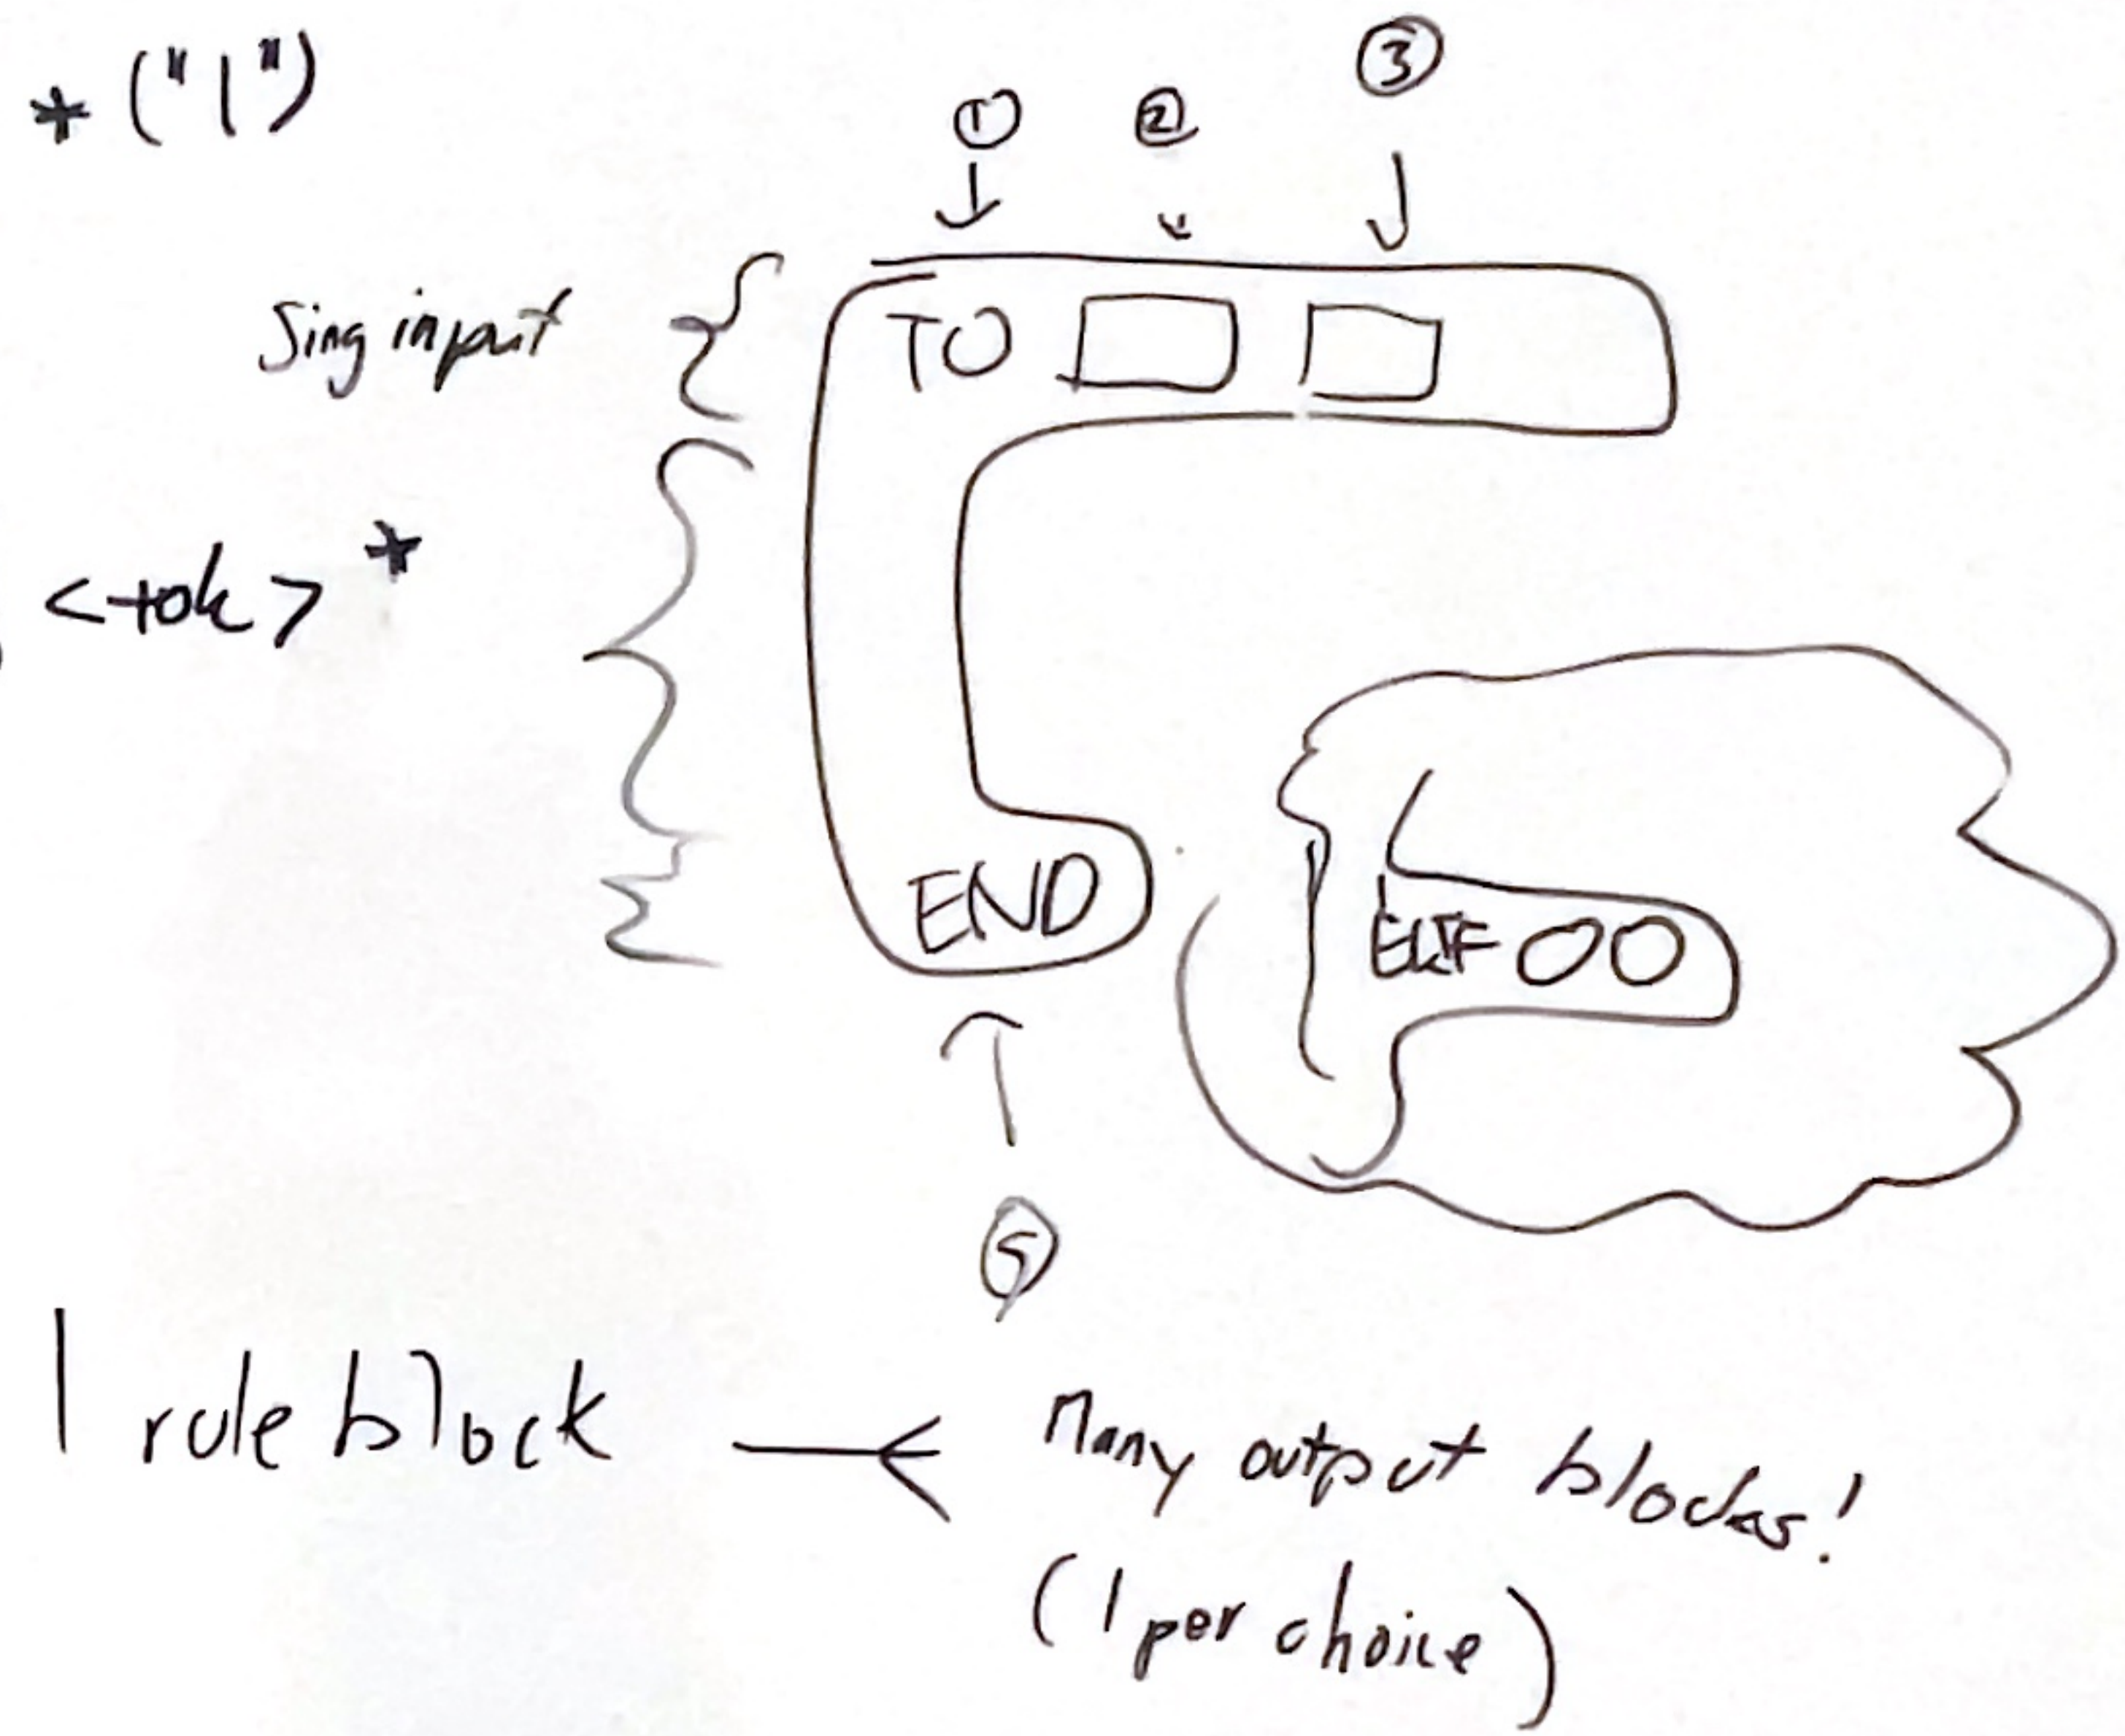 * ("|")
① ② ③
Sing input
TO
<tok>*
END
ELIF
⑤
1 rule block
Many output blocks!
(1 per choice)